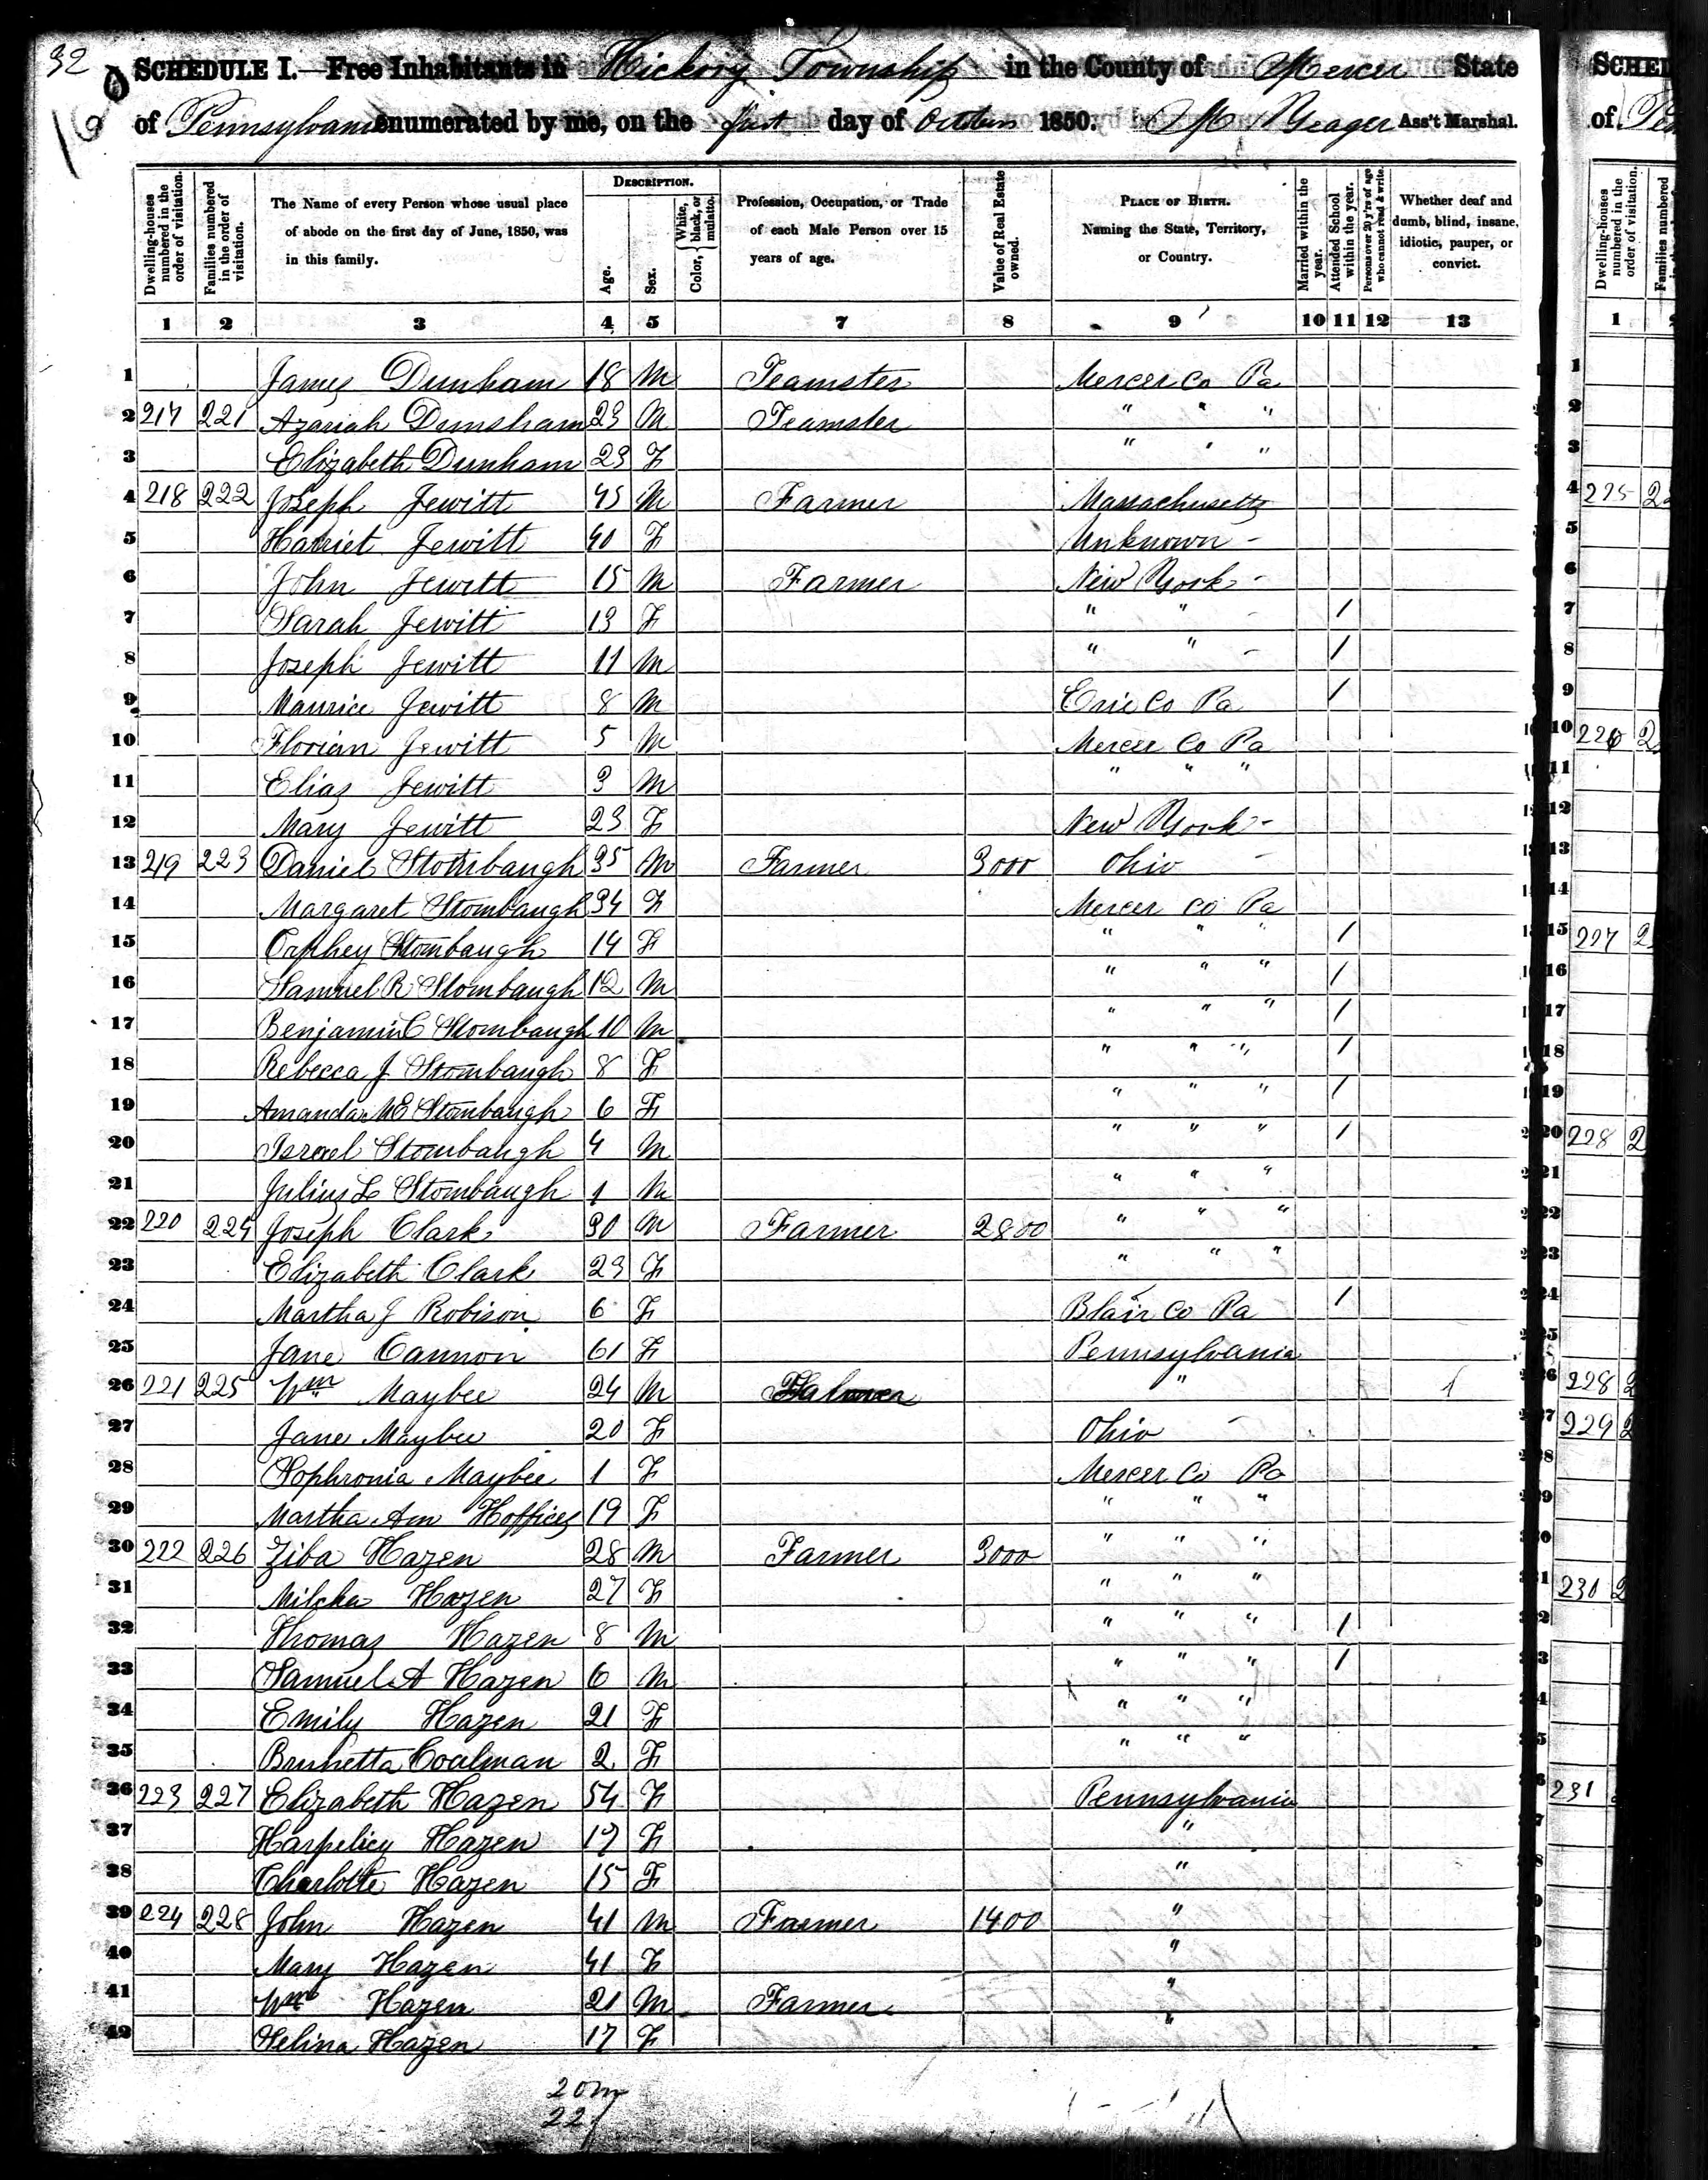 32
SCHEDULE I.—Free Inhabitants in Hickory Township in the County of Mercer State
of Pennsylvania enumerated by me, on the first day of October 1850. Yeager Ass't Marshal.
Dwelling-houses numbered in the order of visitation.
Families numbered in the order of visitation.
The Name of every Person whose usual place of abode on the first day of June, 1850, was in this family.
DESCRIPTION.
Age.
Sex.
Color, { White, black, or mulatto.
Profession, Occupation, or Trade of each Male Person over 15 years of age.
Value of Real Estate owned.
PLACE OF BIRTH. Naming the State, Territory, or Country.
Married within the year.
Attended School within the year.
Persons over 20 y'rs of age who cannot read & write.
Whether deaf and dumb, blind, insane, idiotic, pauper, or convict.
1 2 3 4 5 7 8 9 10 11 12 13
1 James Dunham 18 M Teamster Mercer Co Pa
2 217 221 Azariah Dunsham 23 M Teamster " " "
3 Elizabeth Dunham 23 F " " "
4 218 222 Joseph Jewitt 45 M Farmer Massachusetts
5 Harriet Jewitt 40 F Unknown -
6 John Jewitt 15 M Farmer New York -
7 Sarah Jewitt 13 F " " - /
8 Joseph Jewitt 11 M " " - /
9 Maurice Jewitt 8 M Erie Co Pa /
10 Florian Jewitt 5 M Mercer Co Pa
11 Elias Jewitt 3 M " " "
12 Mary Jewitt 23 F New York -
13 219 223 Daniel Stombaugh 35 M Farmer 3000 Ohio -
14 Margaret Stombaugh 34 F Mercer Co Pa
15 Orphey Stombaugh 14 F " " " /
16 Samuel R Stombaugh 12 M " " " /
17 Benjamin C Stombaugh 10 M " " " /
18 Rebecca J Stombaugh 8 F " " " /
19 Amanda M E Stombaugh 6 F " " " /
20 Israel Stombaugh 4 M " " " /
21 Julius L Stombaugh 1 M " " "
22 220 224 Joseph Clark 30 M Farmer 2800 " " "
23 Elizabeth Clark 23 F " " "
24 Martha J Robison 6 F Blair Co Pa /
25 Jane Cannon 61 F Pennsylvania
26 221 225 Wm Maybee 24 M " 1
27 Jane Maybee 20 F Ohio -
28 Sophronia Maybee 1 F Mercer Co Pa
29 Martha Ann 19 F " " "
30 222 226 Ziba Hazen 28 M Farmer 3000 " " "
31 Milcha Hazen 27 F " " "
32 Thomas Hazen 8 M " " " /
33 Samuel A Hazen 6 M " " " /
34 Emily Hazen 21 F " " "
35 Brunetta Coalman 2 F " " "
36 223 227 Elizabeth Hazen 54 F Pennsylvania
37 Hazen 17 F "
38 Charlotte Hazen 15 F "
39 224 228 John Hazen 41 M Farmer 1400 "
40 Mary Hazen 41 F "
41 Wm Hazen 21 M Farmer "
42 Selina Hazen 17 F "
20 m
22 f
SCHED
of Pen
Dwelling-houses numbered in the order of visitation.
Families numbered
1
1
2
3
4 225 22
5
6
7
8
9
10 226 2
11
12
13
14
15 227 2
16
17
18
19
20 228 2
21
22
23
24
25
26 228 2
27 229 2
230 2
231